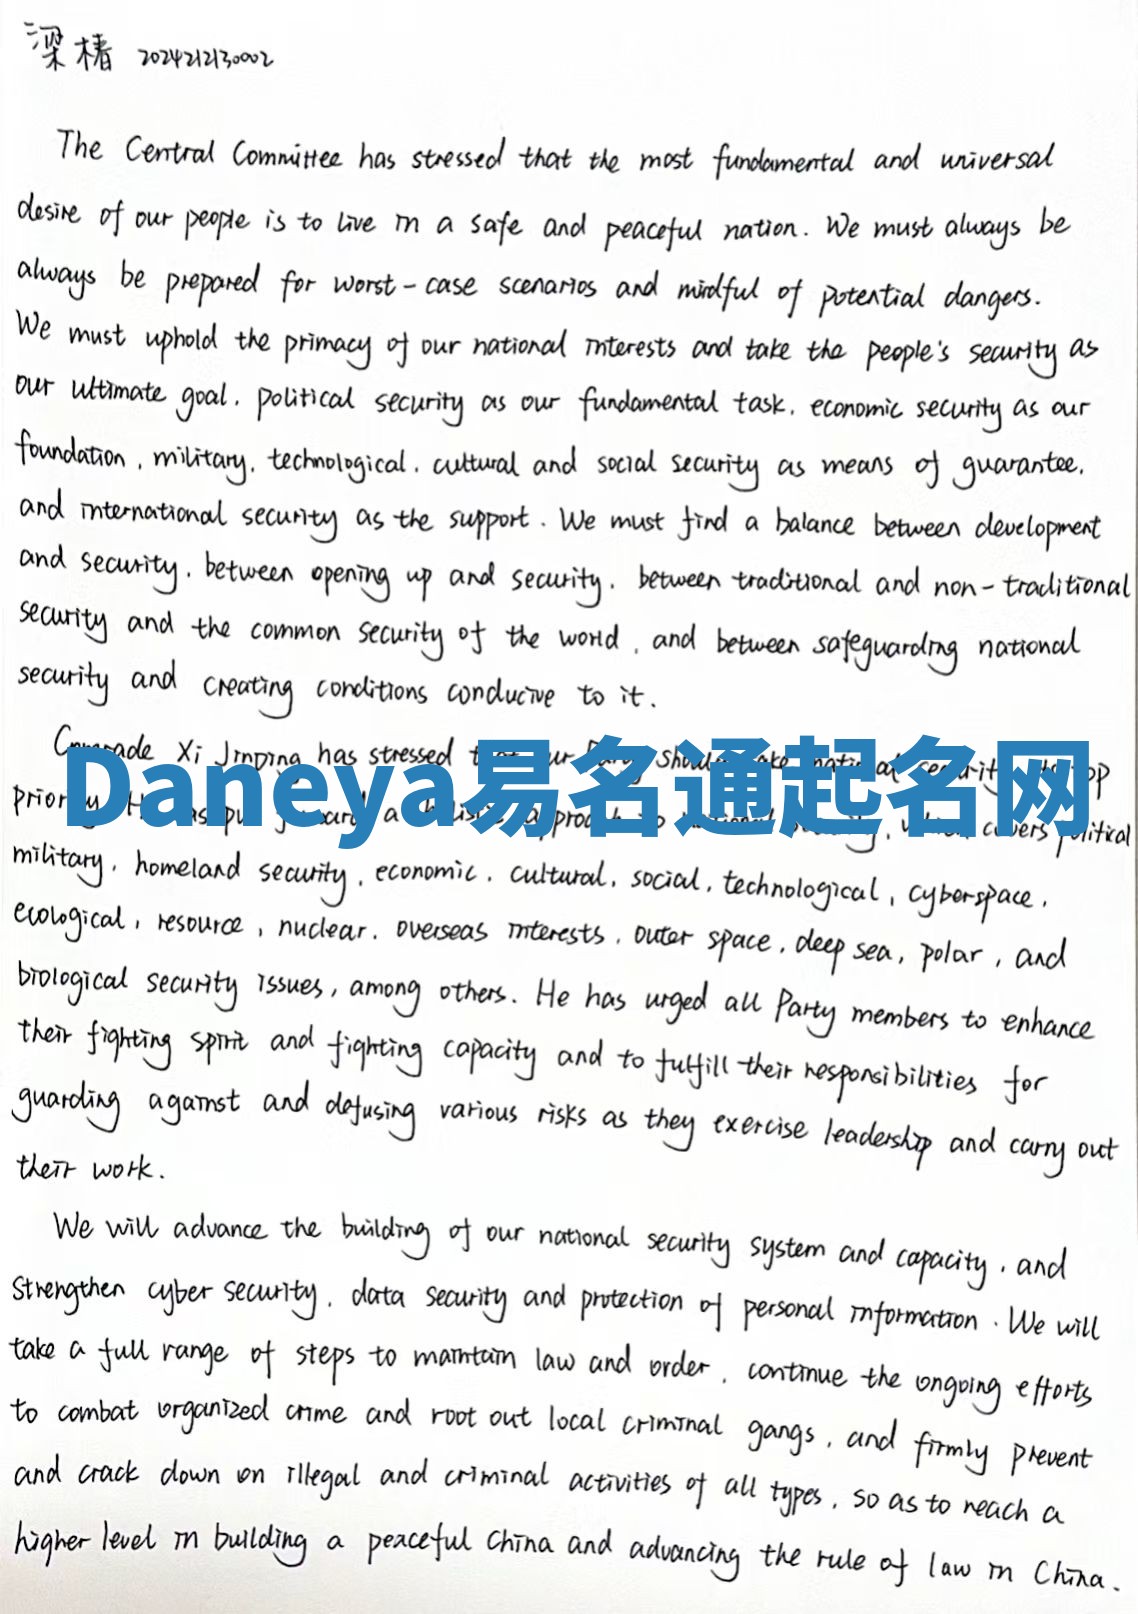 梁椿 2024212130002
The Central Committee has stressed that the most fundamental and universal
desire of our people is to live in a safe and peaceful nation. We must always be
always be prepared for worst-case scenarios and mindful of potential dangers.
We must uphold the primacy of our national interests and take the people's security as
our ultimate goal, political security as our fundamental task, economic security as our
foundation, military, technological, cultural and social security as means of guarantee,
and international security as the support. We must find a balance between development
and security, between opening up and security, between traditional and non-traditional
security and the common security of the world, and between safeguarding national
security and creating conditions conducive to it.
Comrade Xi Jinping has stressed that our Party should national security top
Daneya易名通起名网
priority. a approach covers political
military, homeland security, economic, cultural, social, technological, cyberspace,
ecological, resource, nuclear, overseas interests, outer space, deep sea, polar, and
biological security issues, among others. He has urged all Party members to enhance
their fighting spirit and fighting capacity and to fulfill their responsibilities for
guarding against and defusing various risks as they exercise leadership and carry out
their work.
We will advance the building of our national security system and capacity, and
strengthen cyber security, data security and protection of personal information. We will
take a full range of steps to maintain law and order, continue the ongoing efforts
to combat organized crime and root out local criminal gangs, and firmly prevent
and crack down on illegal and criminal activities of all types, so as to reach a
higher level in building a peaceful China and advancing the rule of law in China.